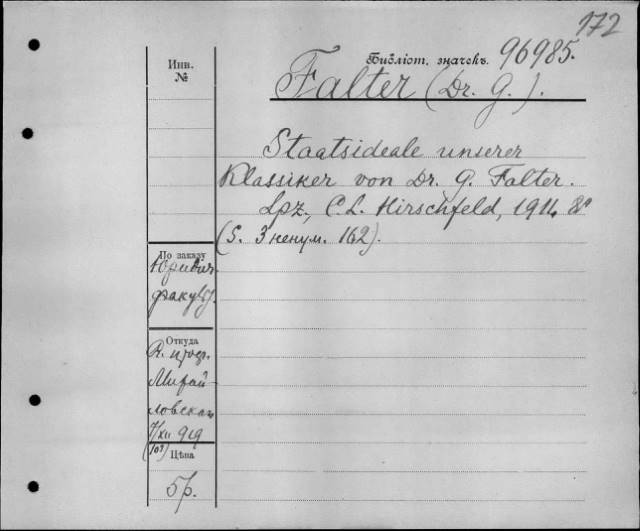 172
Инв. №
Библіот. значекъ. 96985.
Falter (Dr. G.).
Staatsideale unserer
Klassiker von Dr. G. Falter.
Lpz., C. L. Hirschfeld, 1911, 8°
(S. 3 ненум. 162).
По заказу
Юридич.
факульт.
Откуда
К. прод.
Михай-
ловская
7/XII 919
(101)
Цѣна
5р.